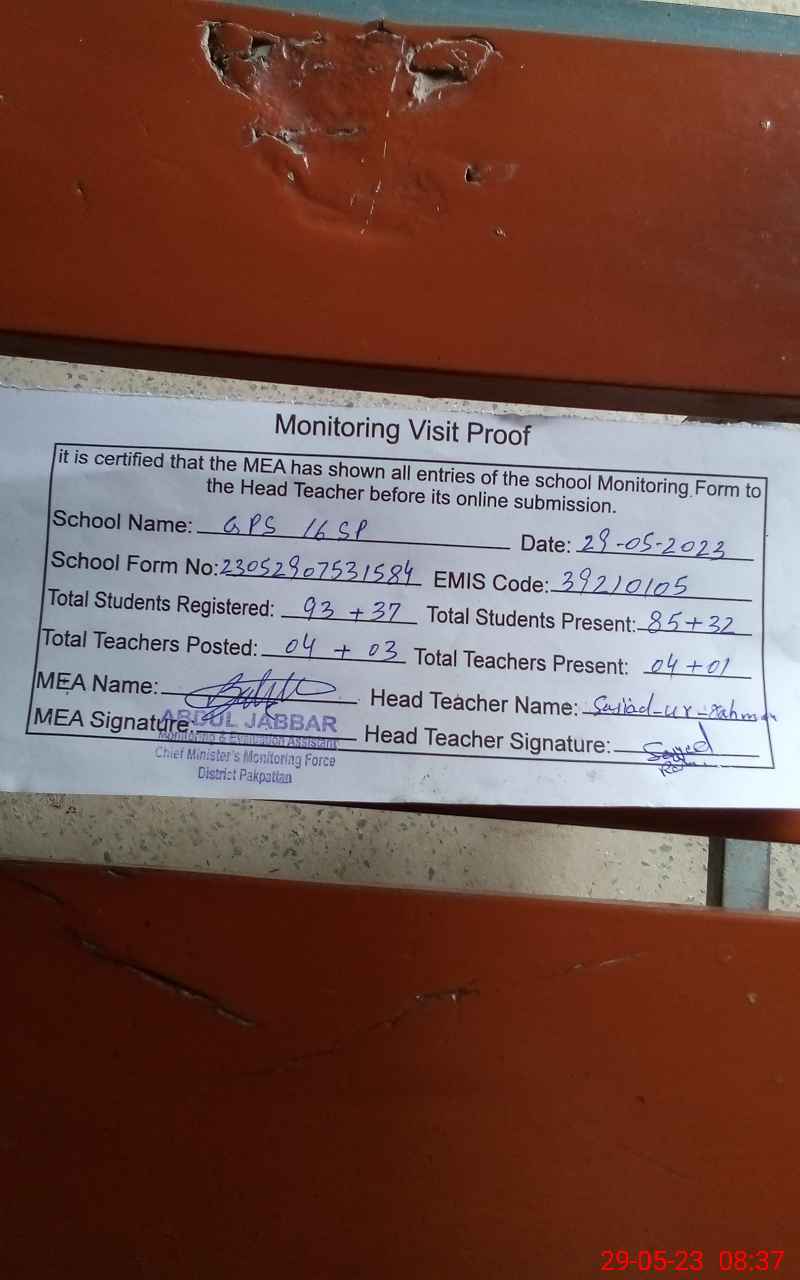 Monitoring Visit Proof
it is certified that the MEA has shown all entries of the school Monitoring Form to
the Head Teacher before its online submission.
School Name: GPS 16 SP Date: 29-05-2023
School Form No: 23052907531584 EMIS Code: 39210105
Total Students Registered: 93 + 37 Total Students Present: 85+32
Total Teachers Posted: 04 + 03 Total Teachers Present: 04+01
MEA Name: Head Teacher Name: Sajjad-ur-Rahman
MEA Signature: Head Teacher Signature:
ABDUL JABBAR
Monitoring & Evaluation Assistant
Chief Minister's Monitoring Force
District Pakpattan
29-05-23 08:37